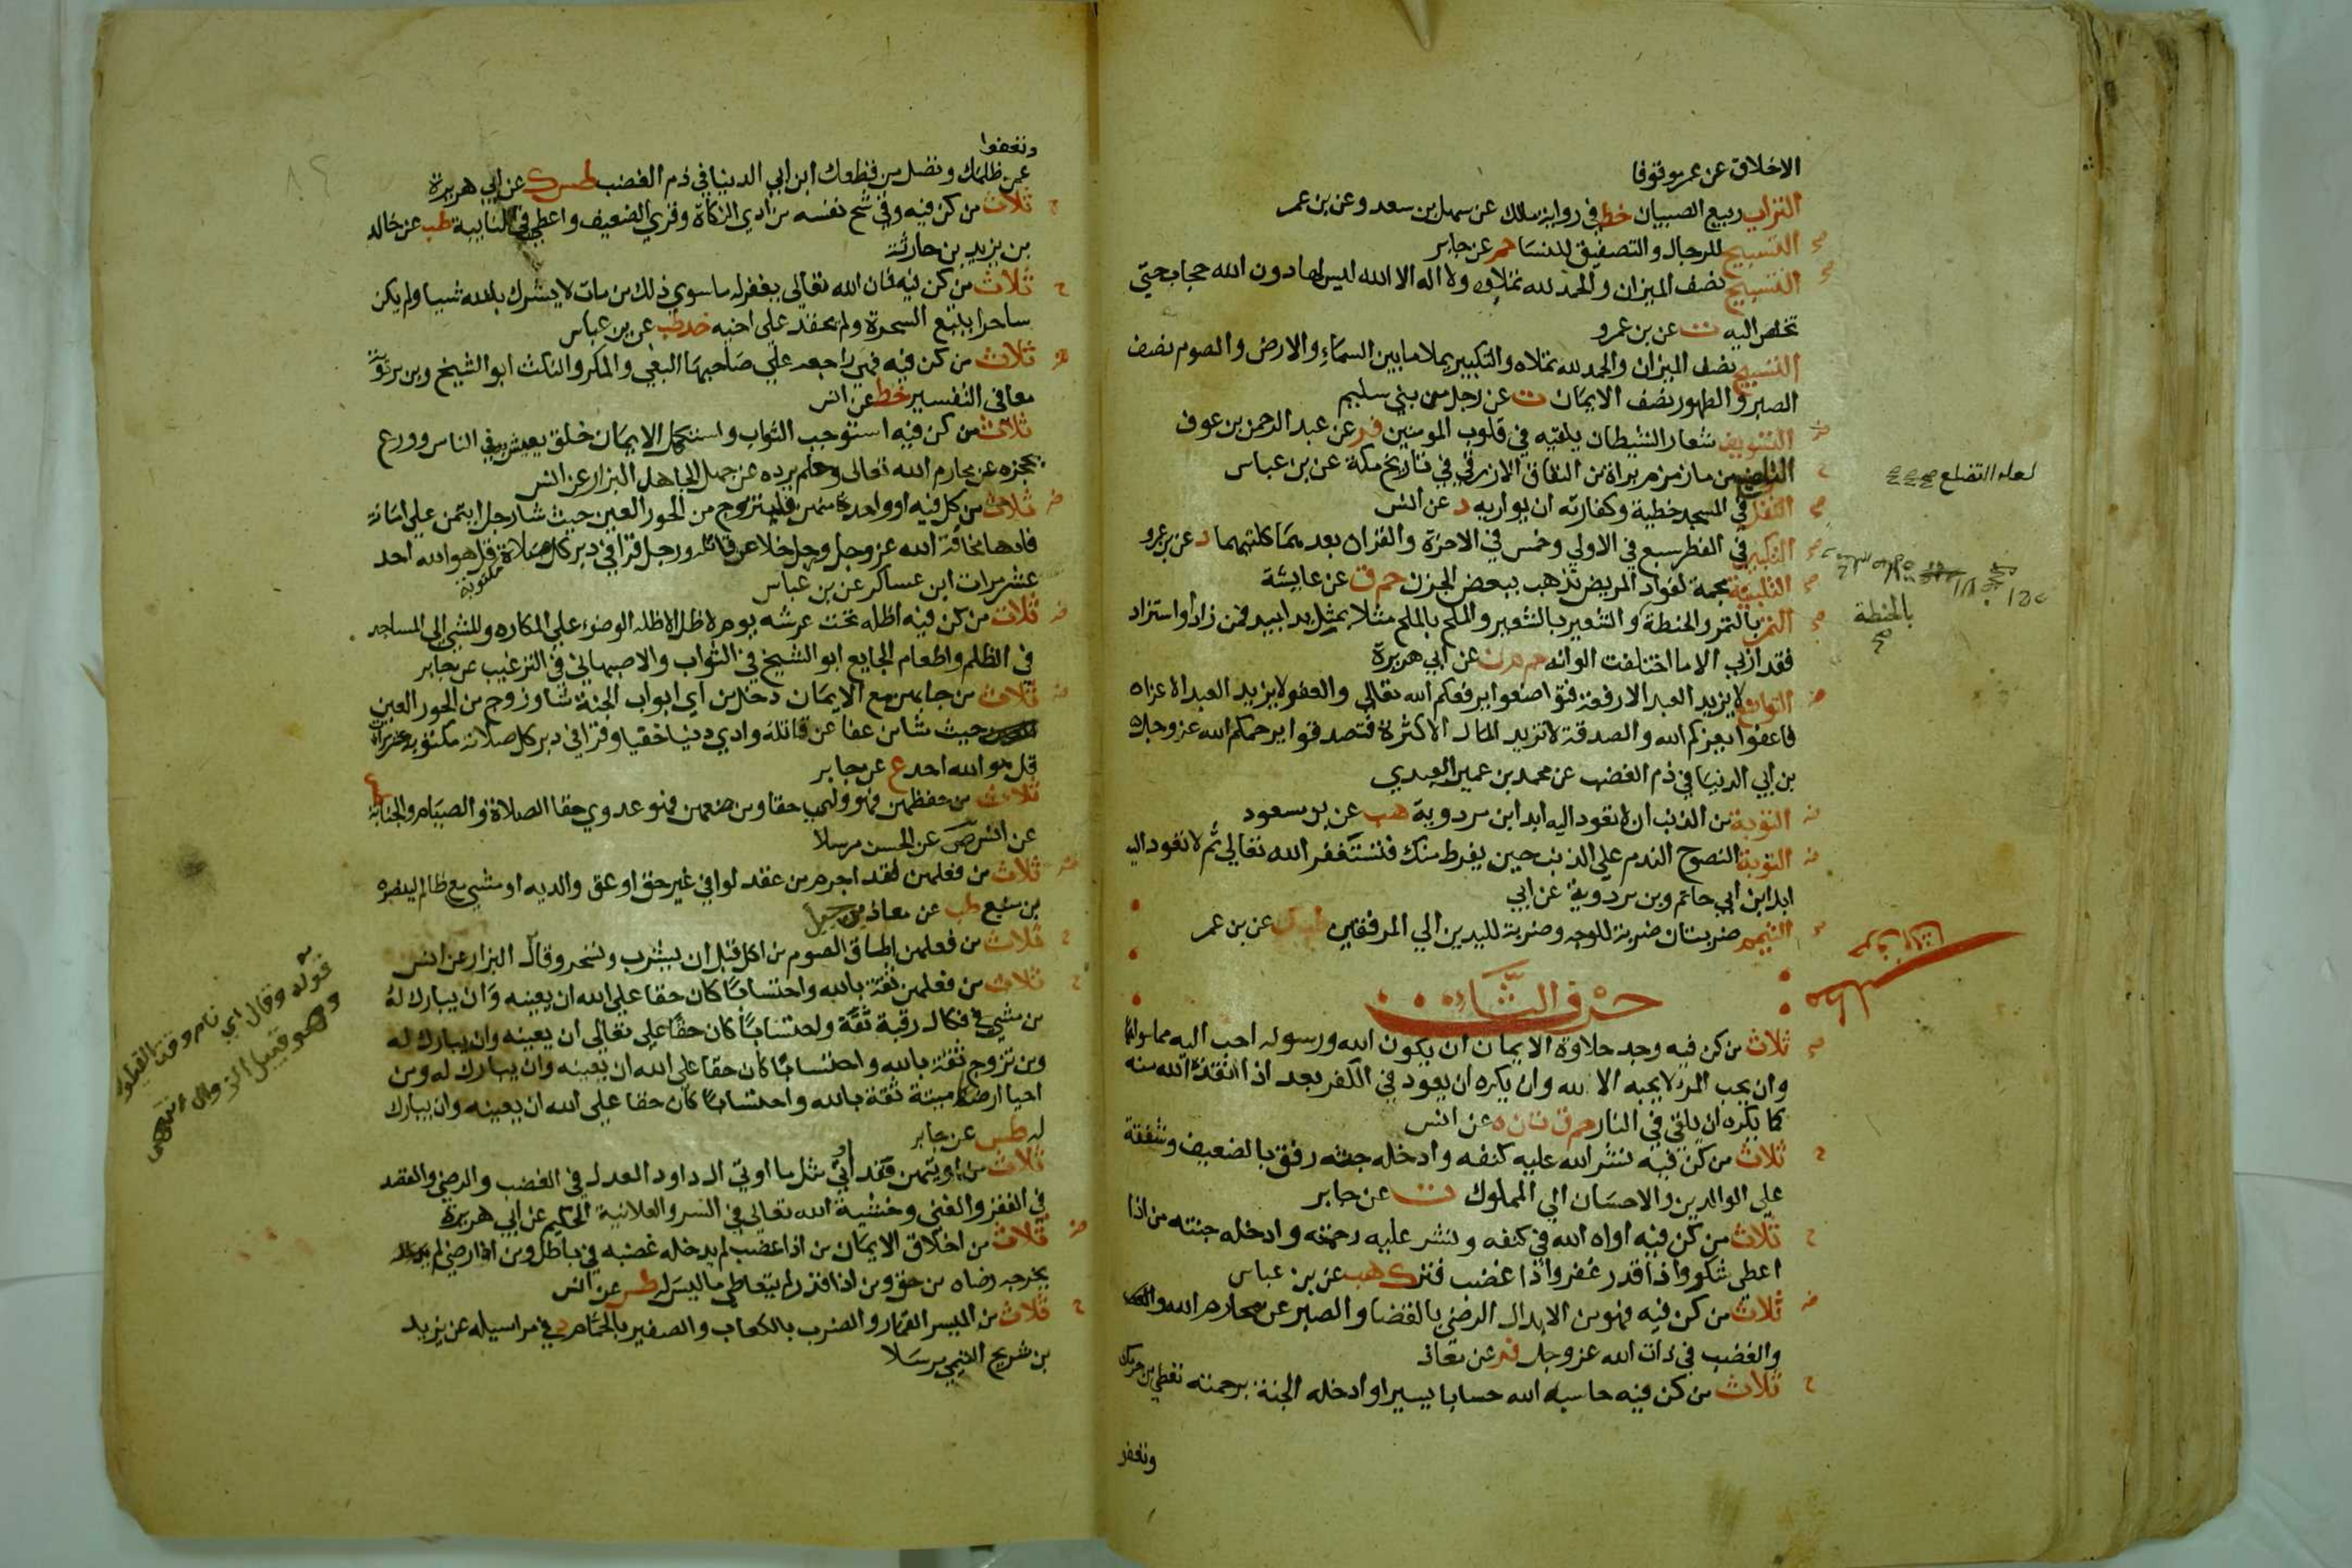 الاخلاق عن عمر موقوفا
التراب ربيع الصبيان خط في رواية مالك عن سهل بن سعد وعن بن عمر
صح التسبيح للرجال والتصفيق للنسا حم عن جابر
صح التسبيح نصف الميزان والحمد لله تملاه ولا اله الا الله ليس لها دون الله حجاب حتي
تخلص اليه ت عن بن عمرو
التسبيح نصف الميزان والحمد لله تملاه والتكبير يملا ما بين السماء والارض والصوم نصف
الصبر والطهور نصف الايمان ت عن رجل من بني سليم
ض التسويف شعار الشيطان يلقيه في قلوب المومنين فر عن عبد الرحمن بن عوف
ح من ماء زمزم براة من النفاق الازرقي في تاريخ مكة عن بن عباس
لعله التضلع
صح التفل في المسجد خطية وكفارته ان يواريه د عن انس
صح التكبير في الفطر سبع في الاولي وخمس في الاخرة والقراة بعدهما كلتيهما د عن بن عمرو
صح التلبينة مجمة لفواد المريض تذهب ببعض الحزن حم ق عن عايشة
صح التمر بالتمر والحنطة والشعير بالشعير والملح بالملح مثلا بمثل يدا بيد فمن زاد او استزاد
بالحنطة
صح
فقد اربي الا ما اختلفت الوانه حم م ن عن ابي هريرة
ض التواضع لا يزيد العبد الا رفعة فتواضعوا يرفعكم الله تعالي والعفو لا يزيد العبد الا عزا
فاعفوا يعزكم الله والصدقة لا تزيد المال الا كثرة فتصدقوا يرحمكم الله عز وجل
بن ابي الدنيا في ذم الغضب عن محمد بن عمير العبدي
ض التوبة من الذنب ان لا تعود اليه ابدا ابن مردوية هب عن بن مسعود
ض التوبة النصوح الندم علي الذنب حين يفرط منك فتستغفر الله تعالي ثم لا تعود اليه
ابدا ابن ابي حاتم وبن مردوية عن ابي
صح التيمم ضربتان ضربة للوجه وضربة لليدين الي المرفقين طب ك عن بن عمر
حرف الثاء
حرف الثاء
مطلب
صح ثلاث من كن فيه وجد حلاوة الايمان ان يكون الله ورسوله احب اليه مما سواهما
وان يحب المرء لا يحبه الا لله وان يكره ان يعود في الكفر بعد اذا انقذه الله منه
كما يكره ان يلقي في النار حم ق ت ن ه عن انس
ح ثلاث من كن فيه نشر الله عليه كنفه وادخله جنته رفق بالضعيف وشفقة
علي الوالدين والاحسان الي المملوك ت عن جابر
ح ثلاث من كن فيه اواه الله في كنفه ونشر عليه رحمته وادخله جنته من اذا
اعطي شكر واذا قدر غفر واذا غضب فتر ك هب عن بن عباس
ض ثلاث من كن فيه فهو من الابدال الرضي بالقضا والصبر عن محارم الله
والغضب في ذات الله عز وجل فر عن معاذ
ح ثلاث من كن فيه حاسبه الله حسابا يسيرا وادخله الجنة برحمته تعطي من حرمك
وتعفو
وتعفوا
عمن ظلمك وتصل من قطعك ابن ابي الدنيا في ذم الغضب طس ك عن ابي هريرة
ح ثلاث من كن فيه وقي شح نفسه من ادي الزكاة وقري الضعيف واعطي في النايبة طب عن خالد
بن يزيد بن حارثة
ح ثلاث من كن فيه فان الله تعالي يغفر له ما سوي ذلك من مات لا يشرك بالله شيا ولم يكن
ساحرا يتبع السحرة ولم يحقد علي اخيه خد طب عن بن عباس
ض ثلاث من كن فيه فهي راجعه علي صاحبها البغي والمكر والنكث ابو الشيخ وبن مردوية
معا في التفسير خط عن انس
ثلاث من كن فيه استوجب الثواب واستكمل الايمان خلق يعيش به في الناس وورع
يحجزه عن محارم الله تعالي وحلم يرده عن جهل الجاهل البزار عن انس
ض ثلاث من كن فيه او واحدة منهن فليتزوج من الحور العين حيث شا رجل ايتمن علي امانة
فاداها مخافة الله عز وجل ورجل خلا عن قاتله ورجل قرا في دبر كل صلاة قل هو الله احد
مكتوبة
عشر مرات ابن عساكر عن بن عباس
ض ثلاث من كن فيه اظله تحت عرشه يوم لا ظل الا ظله الوضوء علي المكاره والمشي الي المساجد
في الظلم واطعام الجايع ابو الشيخ في الثواب والاصبهاني في الترغيب عن جابر
ض ثلاث من جا بهن مع الايمان دخل من اي ابواب الجنة شا وزوج من الحور العين
حيث شا من عفا عن قاتله وادي دينا خفيا وقرا في دبر كل صلاة مكتوبة عشر مرات
قل هو الله احد ع عن جابر
ثلاث من حفظهن فهو ولي حقا ومن ضيعهن فهو عدوي حقا الصلاة والصيام والجنابة
عن انس ص عن الحسن مرسلا
ض ثلاث من فعلهن فقد اجرم من عقد لوا في غير حق او عق والديه او مشي مع ظالم لينصره
بن منيع طب عن معاذ بن جبل
ح ثلاث من فعلهن اطاق الصوم من اكل قبل ان يشرب وتسحر وقال البزار عن انس
قوله وقال اي نام وقت القيلولة
وهو قبيل الزوال انتهى
ح ثلاث من فعلهن ثقة بالله واحتسابا كان حقا علي الله ان يعينه وان يبارك له
من مشي في فكاك رقبة ثقة واحتسابا كان حقا علي تعالي ان يعينه وان يبارك له
ومن تزوج ثقة بالله واحتسابا كان حقا علي الله ان يعينه وان يبارك له ومن
احيا ارضا ميتة ثقة بالله واحتسابا كان حقا علي الله ان يعينه وان يبارك
له طس عن جابر
ثلاث من اوتيهن فقد اوتي مثل ما اوتي ال داود العدل في الغضب والرضي والقصد
في الفقر والغني وخشية الله تعالي في السر والعلانية الحكيم عن ابي هريرة
ض ثلاث من اخلاق الايمان من اذا غضب لم يدخله غضبه في باطل ومن اذا رضي لم
يخرجه رضاه من حق ومن اذا قدر لم يتعاطي ما ليس له طس عن انس
ح ثلاث من الميسر القمار والضرب بالكعاب والصفير بالحمام د في مراسيله عن يزيد
بن شريح التيمي مرسلا